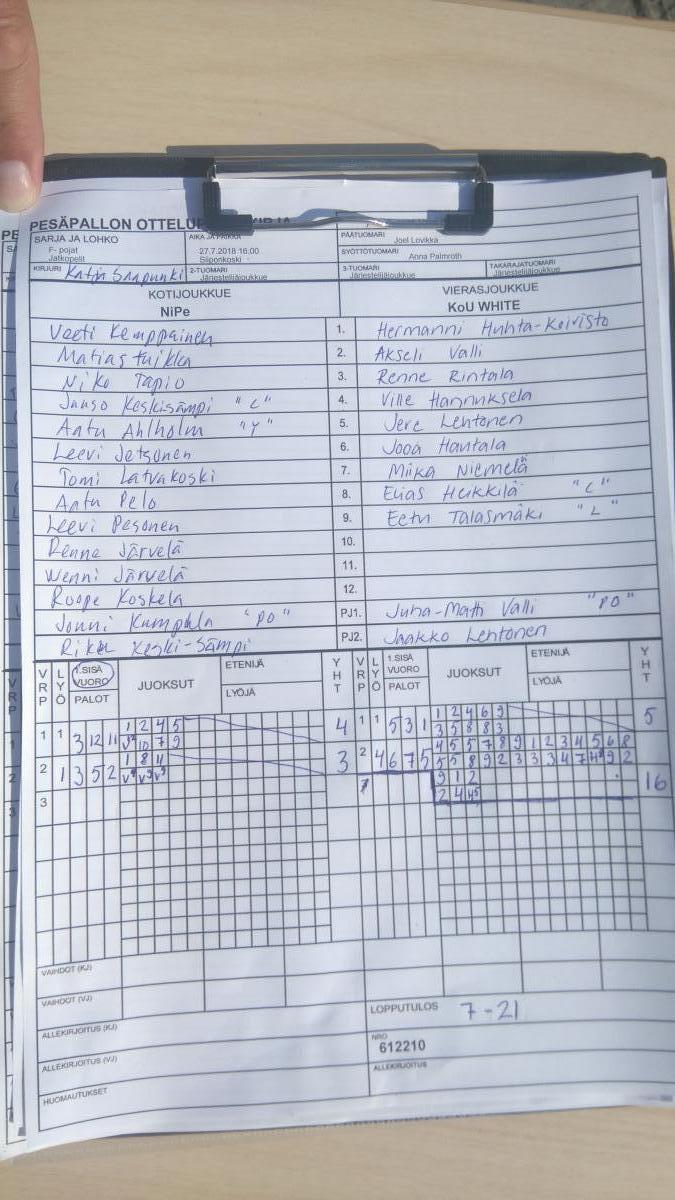 PESÄPALLON OTTELU
SARJA JA LOHKO AIKA JA PAIKKA PÄÄTUOMARI Joel Lovikka
F- pojat 27.7.2018 16:00 SYÖTTÖTUOMARI Anna Palmroth
Jatkopelit Siiponkoski
KIRJURI Katja Saapunki 2-TUOMARI Järjestelijäjoukkue 3-TUOMARI Järjestelijäjoukkue TAKARAJATUOMARI Järjestelijäjoukkue
KOTIJOUKKUE VIERASJOUKKUE
NiPe KoU WHITE
Veeti Kemppainen 1. Hermanni Huhta-Koivisto
Matias Tuikka 2. Akseli Valli
Niko Tapio 3. Renne Rintala
Juuso Keskisämpi "C" 4. Ville Hannuksela
Aatu Ahlholm "Y" 5. Jere Lehtonen
Leevi Jetsonen 6. Jooa Hautala
Tomi Latvakoski 7. Miika Niemelä
Aatu Pelo 8. Elias Heikkilä "C"
Leevi Pesonen 9. Eetu Talasmäki "L"
Renne Järvelä 10.
Wenni Järvelä 11.
Roope Koskela 12.
Jouni Kumpula "PO" PJ1. Juha-Matti Valli "PO"
Riku Keski-Sämpi PJ2. Jaakko Lehtonen
VRP LYÖ 1.SISÄ VUORO PALOT JUOKSUT ETENIJÄ LYÖJÄ YHT VRP LYÖ 1.SISÄ VUORO PALOT JUOKSUT ETENIJÄ LYÖJÄ YHT
1 1 3 12 11 1 2 4 5 4 1 1 5 3 1 1 2 4 6 9 5
10 7 9 3 5 8 8 3
2 1 3 5 2 1 8 11 3 2 4 6 7 5 4 5 5 7 8 9 1 2 3 4 5 6 8
5 5 8 9 2 3 3 3 4 7 9 2
3 7 9 1 2 16
2 4
VAIHDOT (KJ)
VAIHDOT (VJ)
LOPPUTULOS 7-21
ALLEKIRJOITUS (KJ) NRO
612210
ALLEKIRJOITUS (VJ) ALLEKIRJOITUS
HUOMAUTUKSET